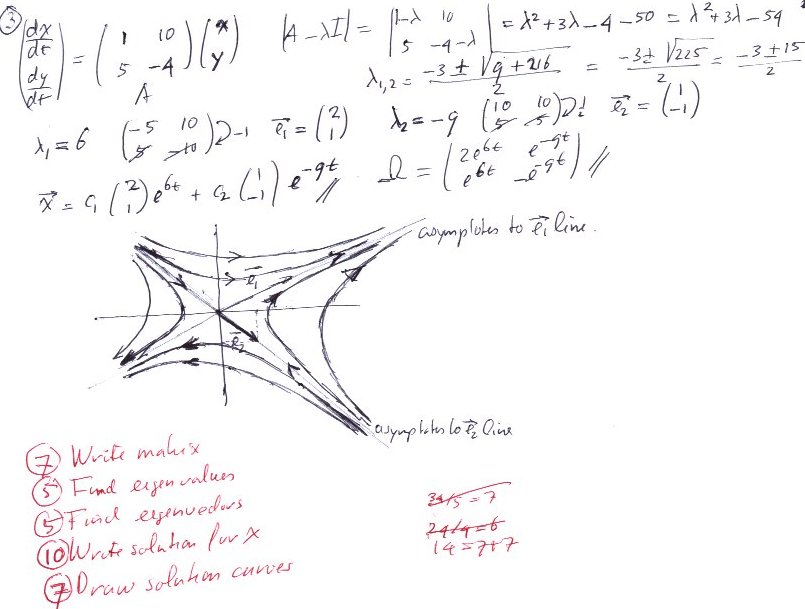 ③ (dx/dt dy/dt) = (1 10 5 -4) (x y) |A - λI| = |1-λ 10 5 -4-λ| = λ²+3λ-4-50 = λ²+3λ-54
A
λ1,2 = (-3 ± √(9+216))/2 = (-3 ± √225)/2 = (-3 ± 15)/2
λ1 = 6 (-5 10 5 -10) 2-1 e1 = (2 1) λ2 = -9 (10 10 5 5) e2 = (1 -1)
x = c1 (2 1) e^6t + c2 (1 -1) e^-9t // Ω = (2e^6t e^-9t e^6t -e^-9t) //
asymptotes to e1 line.
e1
e2
asymptotes to e2 line
⑦ Write matrix
⑤ Find eigenvalues
⑤ Find eigenvectors
⑩ Write solution for x
⑦ Draw solution curves
34/5 = 7
24/4 = 6
14 = 7+7